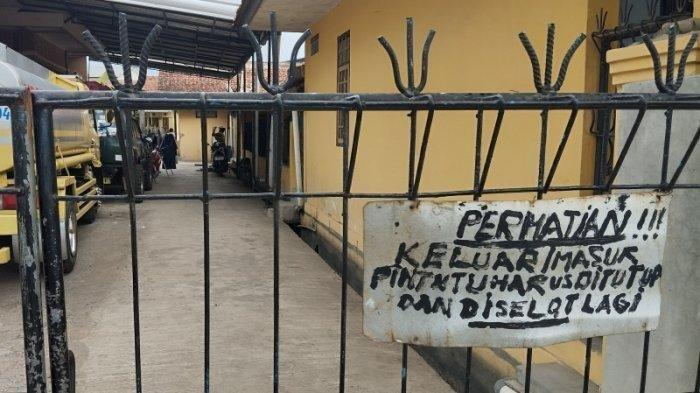 04
PERHATIAN!!!
KELUAR/MASUK
PINTNTU HARUS DITUTUP
DAN DISELOT LAGI